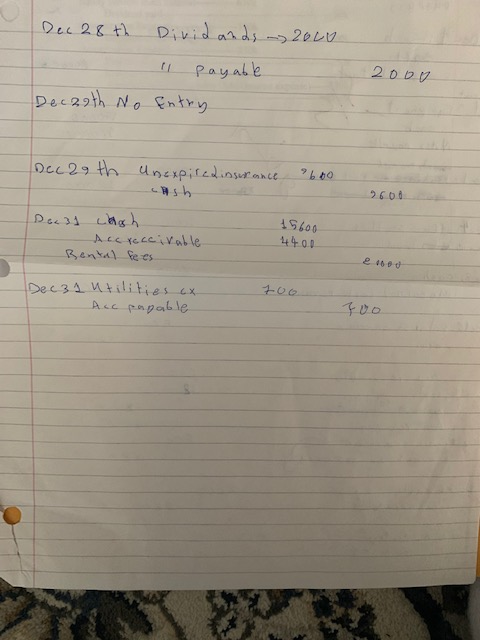 Dec 28th Dividands → 2000
" payable 2000
Dec29th No Entry
Dec 29th Unexpiredinsurance 9600
cash 9600
Dec 31 cash 15600
Acc receivable 4400
Rental fees
Dec31 Utilities ex 700
Acc payable 700